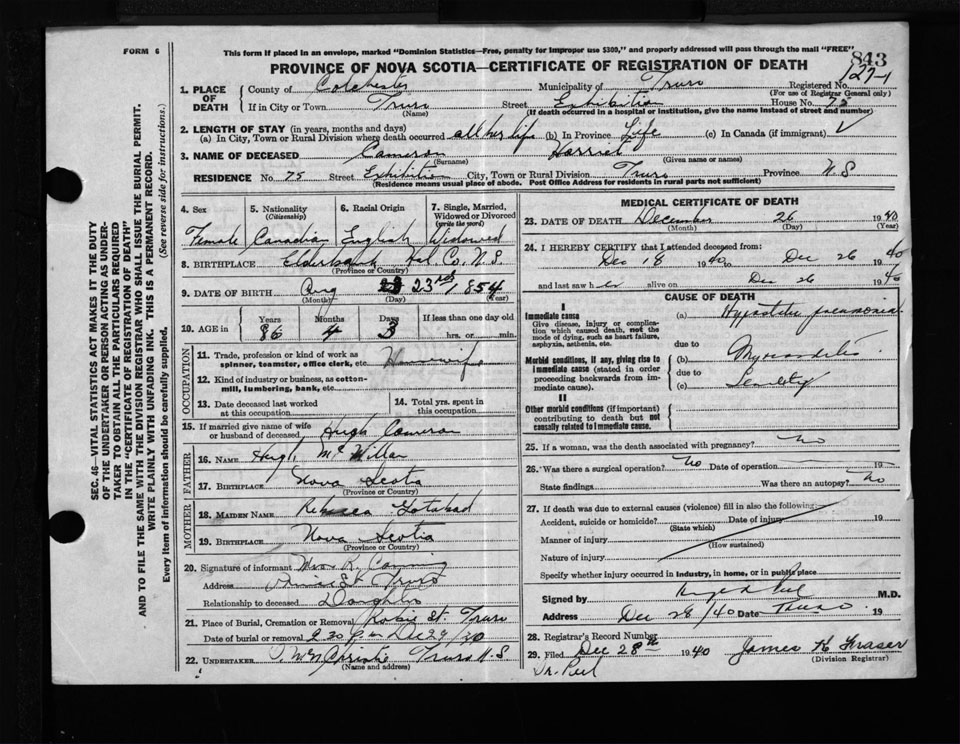 FORM 6
This form if placed in an envelope, marked "Dominion Statistics—Free, penalty for improper use $300," and properly addressed will pass through the mail "FREE"
843
PROVINCE OF NOVA SCOTIA—CERTIFICATE OF REGISTRATION OF DEATH
1. PLACE OF DEATH
County of Colchester Municipality of Truro Registered No. 127-1
(For use of Registrar General only)
If in City or Town Truro Street Exhibition House No. 75
(Name) (If death occurred in a hospital or institution, give the name instead of street and number)
2. LENGTH OF STAY (in years, months and days)
(a) In City, Town or Rural Division where death occurred all her life (b) In Province Life (c) In Canada (if immigrant)
3. NAME OF DECEASED Cameron Harriet
(Surname) (Given name or names)
RESIDENCE No. 75 Street Exhibition City, Town or Rural Division Truro Province N.S
(Residence means usual place of abode. Post Office Address for residents in rural parts not sufficient)
4. Sex 5. Nationality (Citizenship) 6. Racial Origin 7. Single, Married, Widowed or Divorced (write the word)
Female Canadian English Widowed
8. BIRTHPLACE Elderbank Hal. Co. N.S.
(Province or Country)
9. DATE OF BIRTH Aug 23rd 1854
(Month) (Day) (Year)
10. AGE in Years Months Days If less than one day old
86 4 3 hrs. or min.
OCCUPATION
11. Trade, profession or kind of work as spinner, teamster, office clerk, etc. Housewife
12. Kind of industry or business, as cotton-mill, lumbering, bank, etc.
13. Date deceased last worked at this occupation
14. Total yrs. spent in this occupation
15. If married give name of wife or husband of deceased Hugh Cameron
FATHER
16. NAME Hugh Mc Millan
17. BIRTHPLACE Nova Scotia
(Province or Country)
MOTHER
18. MAIDEN NAME Rebecca
19. BIRTHPLACE Nova Scotia
(Province or Country)
20. Signature of informant Mrs R.
Address Prince St Truro
Relationship to deceased Daughter
21. Place of Burial, Cremation or Removal Robie St. Truro
Date of burial or removal 2.30 p.m Dec 29/40
22. UNDERTAKER Christie Truro N.S
(Name and address)
MEDICAL CERTIFICATE OF DEATH
23. DATE OF DEATH December 26 1940
(Month) (Day) (Year)
24. I HEREBY CERTIFY that I attended deceased from:
Dec 18 1940 to Dec 26 1940
and last saw her alive on Dec 26 1940
CAUSE OF DEATH
I
Immediate cause (a) Hypostatic pneumonia
Give disease, injury or complication which caused death, not the mode of dying, such as heart failure, asphyxia, asthenia, etc.
due to
Morbid conditions, if any, giving rise to immediate cause (stated in order proceeding backwards from immediate cause). (b) Myocarditis
due to
(c) Senility
II
Other morbid conditions (if important) contributing to death but not causally related to immediate cause.
25. If a woman, was the death associated with pregnancy? no
26. Was there a surgical operation? No Date of operation 19
State findings Was there an autopsy? No
27. If death was due to external causes (violence) fill in also the following:
Accident, suicide or homicide? Date of injury 19
(State which)
Manner of injury
(How sustained)
Nature of injury
Specify whether injury occurred in industry, in home, or in public place
Signed by M.D.
Address Dec 28/40 Date Truro 19
28. Registrar's Record Number
29. Filed Dec 28th 1940 James K Fraser
(Division Registrar)
Dr. Peel
SEC. 46—VITAL STATISTICS ACT MAKES IT THE DUTY
OF THE UNDERTAKER OR PERSON ACTING AS UNDER-
TAKER TO OBTAIN ALL THE PARTICULARS REQUIRED
IN THE "CERTIFICATE OF REGISTRATION OF DEATH"
AND TO FILE THE SAME WITH THE DIVISION REGISTRAR WHO SHALL ISSUE THE BURIAL PERMIT.
WRITE PLAINLY WITH UNFADING INK. THIS IS A PERMANENT RECORD.
Every item of information should be carefully supplied. (See reverse side for instructions.)